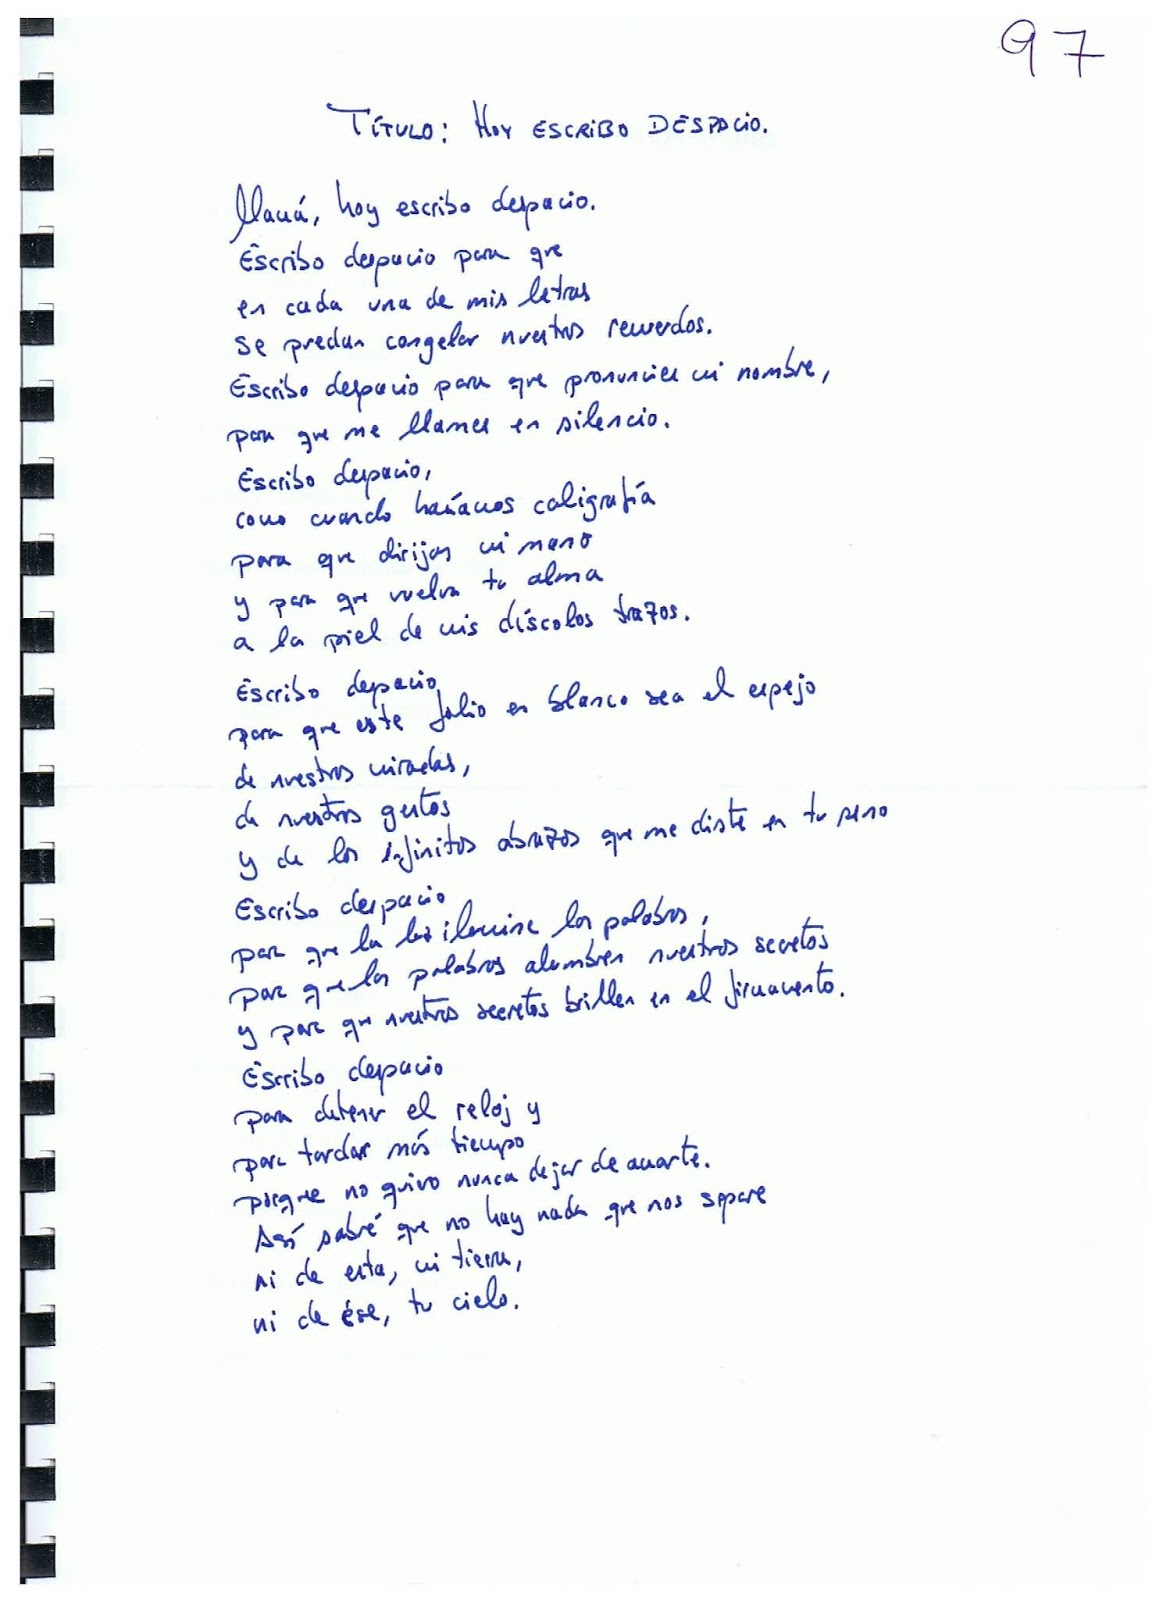 97
TÍTULO: HOY ESCRIBO DESPACIO.
Mamá, hoy escribo despacio.
Escribo despacio para que
en cada una de mis letras
se puedan congelar nuestros recuerdos.
Escribo despacio para que pronuncies mi nombre,
para que me llames en silencio.
Escribo despacio,
como cuando hacíamos caligrafía
para que dirijas mi mano
y para que vuelva tu alma
a la piel de mis díscolos trazos.
Escribo despacio
para que este folio en blanco sea el espejo
de nuestras miradas,
de nuestros gestos
y de los infinitos abrazos que me diste en tu seno
Escribo despacio
para que la luz ilumine las palabras,
para que las palabras alumbren nuestros secretos
y para que nuestros secretos brillen en el firmamento.
Escribo despacio
para detener el reloj y
para tardar más tiempo
porque no quiero nunca dejar de amarte.
Así sabré que no hay nada que nos separe
ni de esta, mi tierra,
ni de ése, tu cielo.